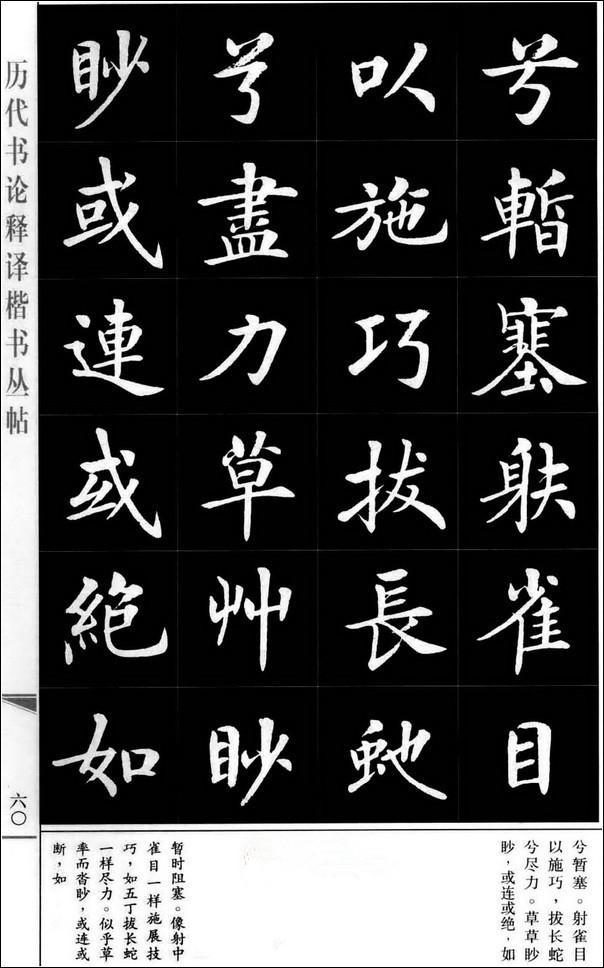 兮暫塞䠶雀目
以施巧拔長虵
兮盡力草艸眇
眇或連或絶如
历代书论释译楷书丛帖
六〇
兮暂塞。射雀目
以施巧，拔长蛇
兮尽力。草草眇
眇，或连或绝，如
暂时阻塞。像射中
雀目一样施展技
巧，如五丁拔长蛇
一样尽力。似乎草
率而杳眇，或连或
断，如